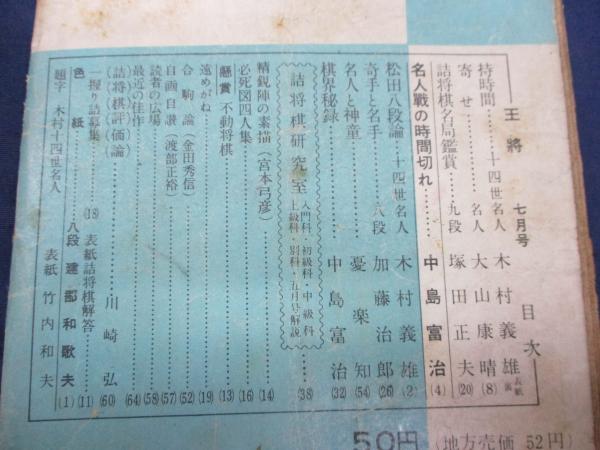 王將 七月号 目次
待時間……十四世名人 木村義雄 表紙裏
寄せ……名人 大山康晴 (8)
詰将棋名局鑑賞……九段 塚田正夫 (20)
名人戰の時間切れ……中島富治 (4)
松田八段論……十四世名人 木村義雄 (2)
奇手と名手……八段 加藤治郎 (26)
名人と神童……憂楽知 (54)
棋界秘録……中島富治 (32)
詰将棋研究室 入門科・初級科・中級科 上級科・別科・五月号解説 (38)
精鋭陣の素描(宮本弓彦)……(14)
必死図四人集……(16)
懸賞 不動将棋……(13)
遠めがね……(19)
合駒論(金田秀信)……(52)
自画自讃(渡部正裕)……(57)
読者の広場……(58)
最近の佳作……(64)
(詰将棋評価論)……川崎弘 (60)
一握り詰募集……(18) 表紙詰将棋解答……(11)
色紙……八段 建部和歌夫 (1)
題字 木村十四世名人 表紙 竹内和夫
50円(地方売価 52円)